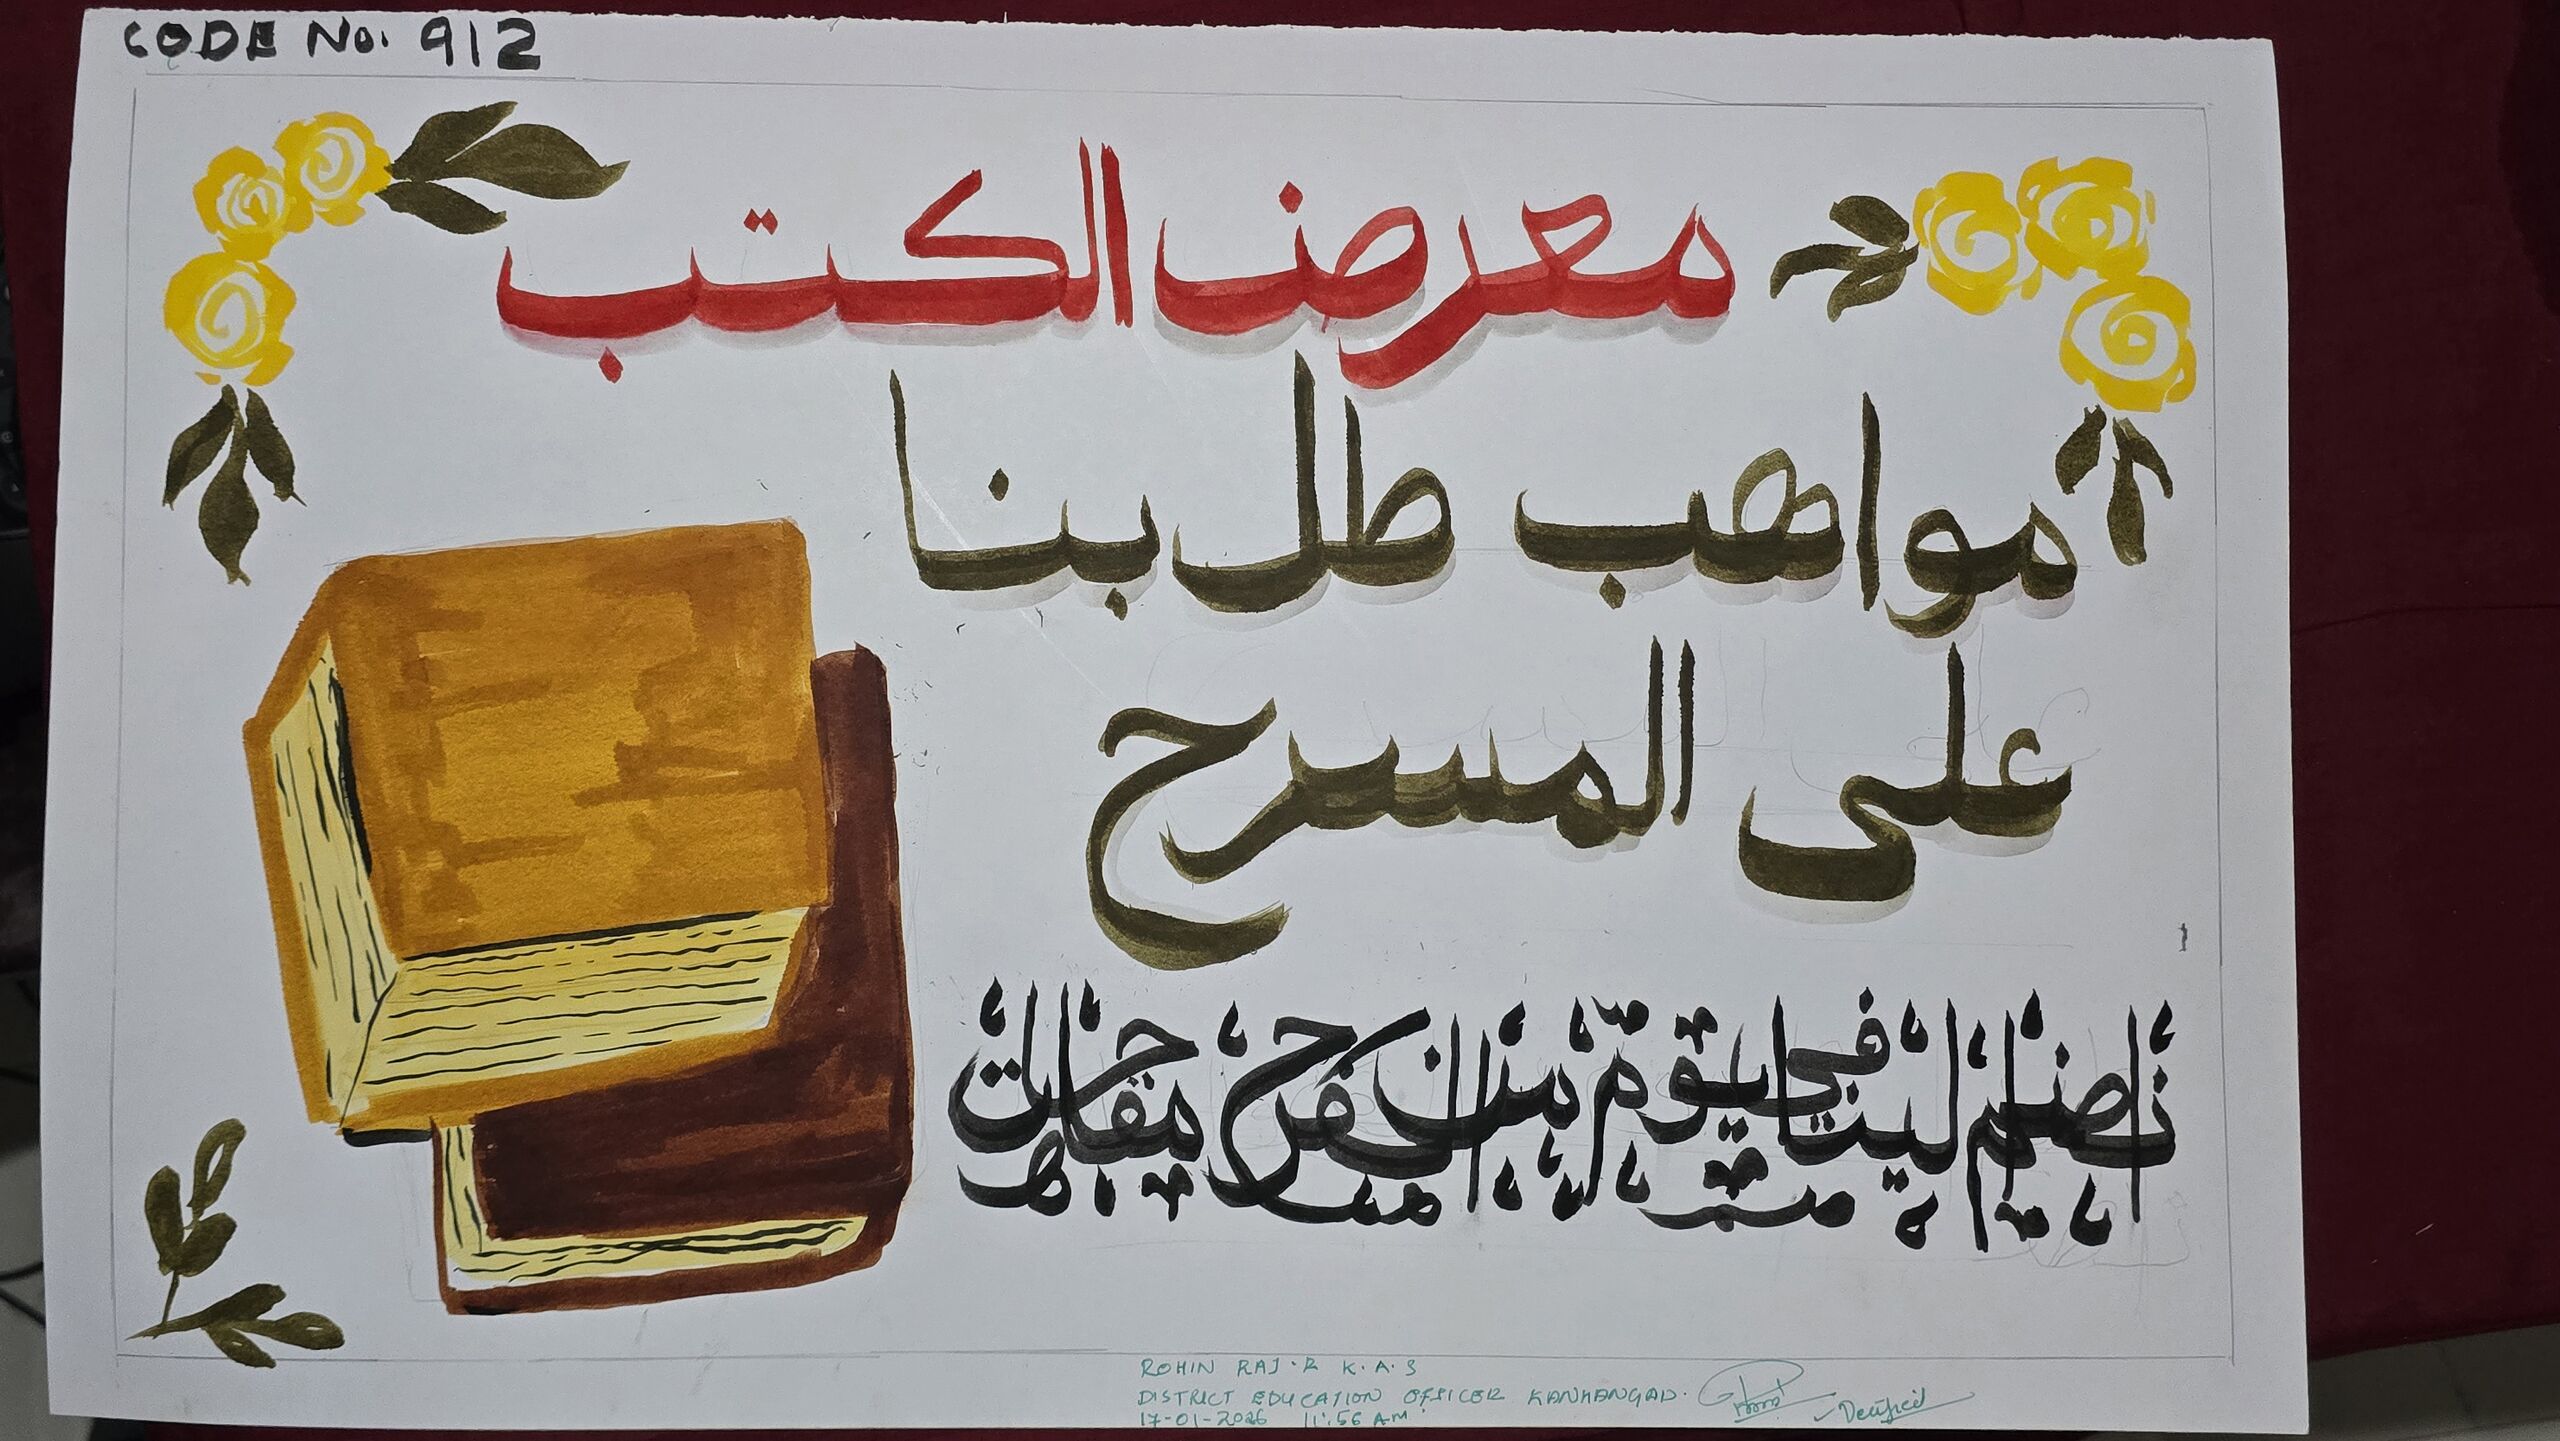 CODE No. 912
معرض الكتب
مواهب طلبنا
على المسرح
في يوم
ROHIN RAJ. R K.A.S
DISTRICT EDUCATION OFFICER KANHANGAD.
17-01-2026 11:56 AM
Verified